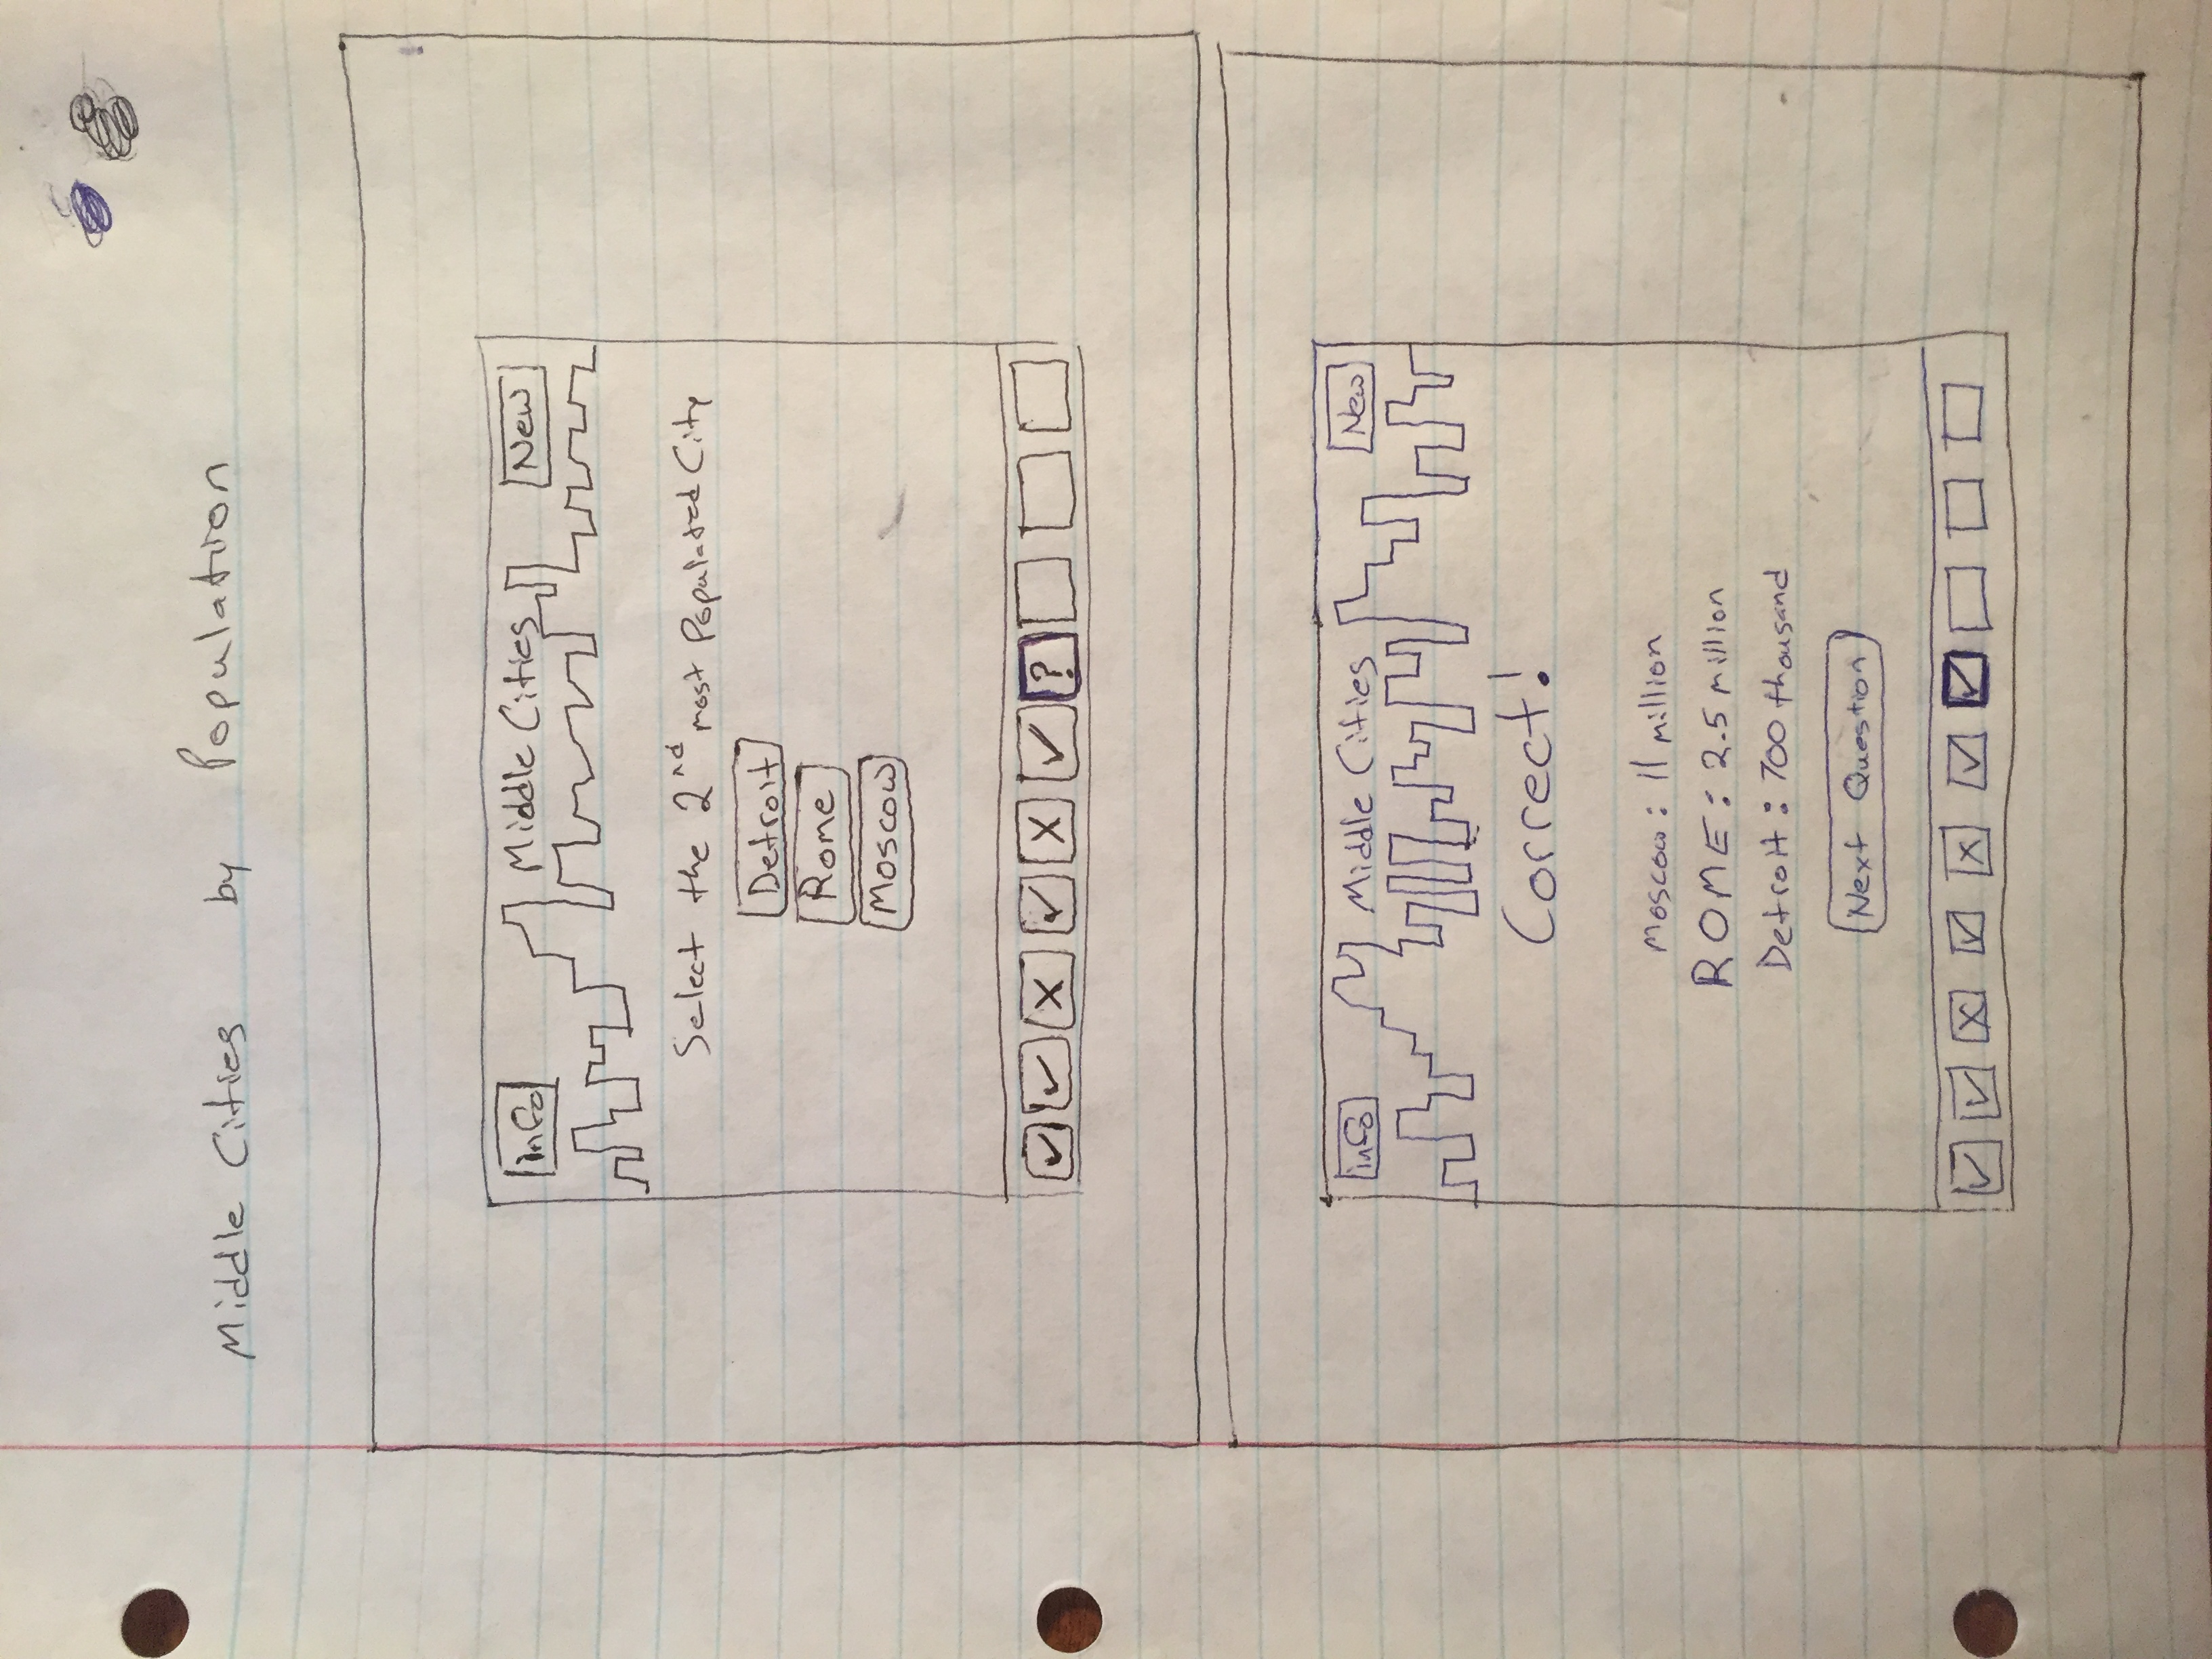 Middle Cities by Population
info Middle Cities New
Select the 2nd most Populated City
Detroit
Rome
Moscow
✓ ✓ X ✓ X ✓ ?
info Middle Cities New
Correct!
Moscow: 11 million
ROME: 2.5 million
Detroit: 700 thousand
Next Question
✓ ✓ X ✓ X ✓ ✓